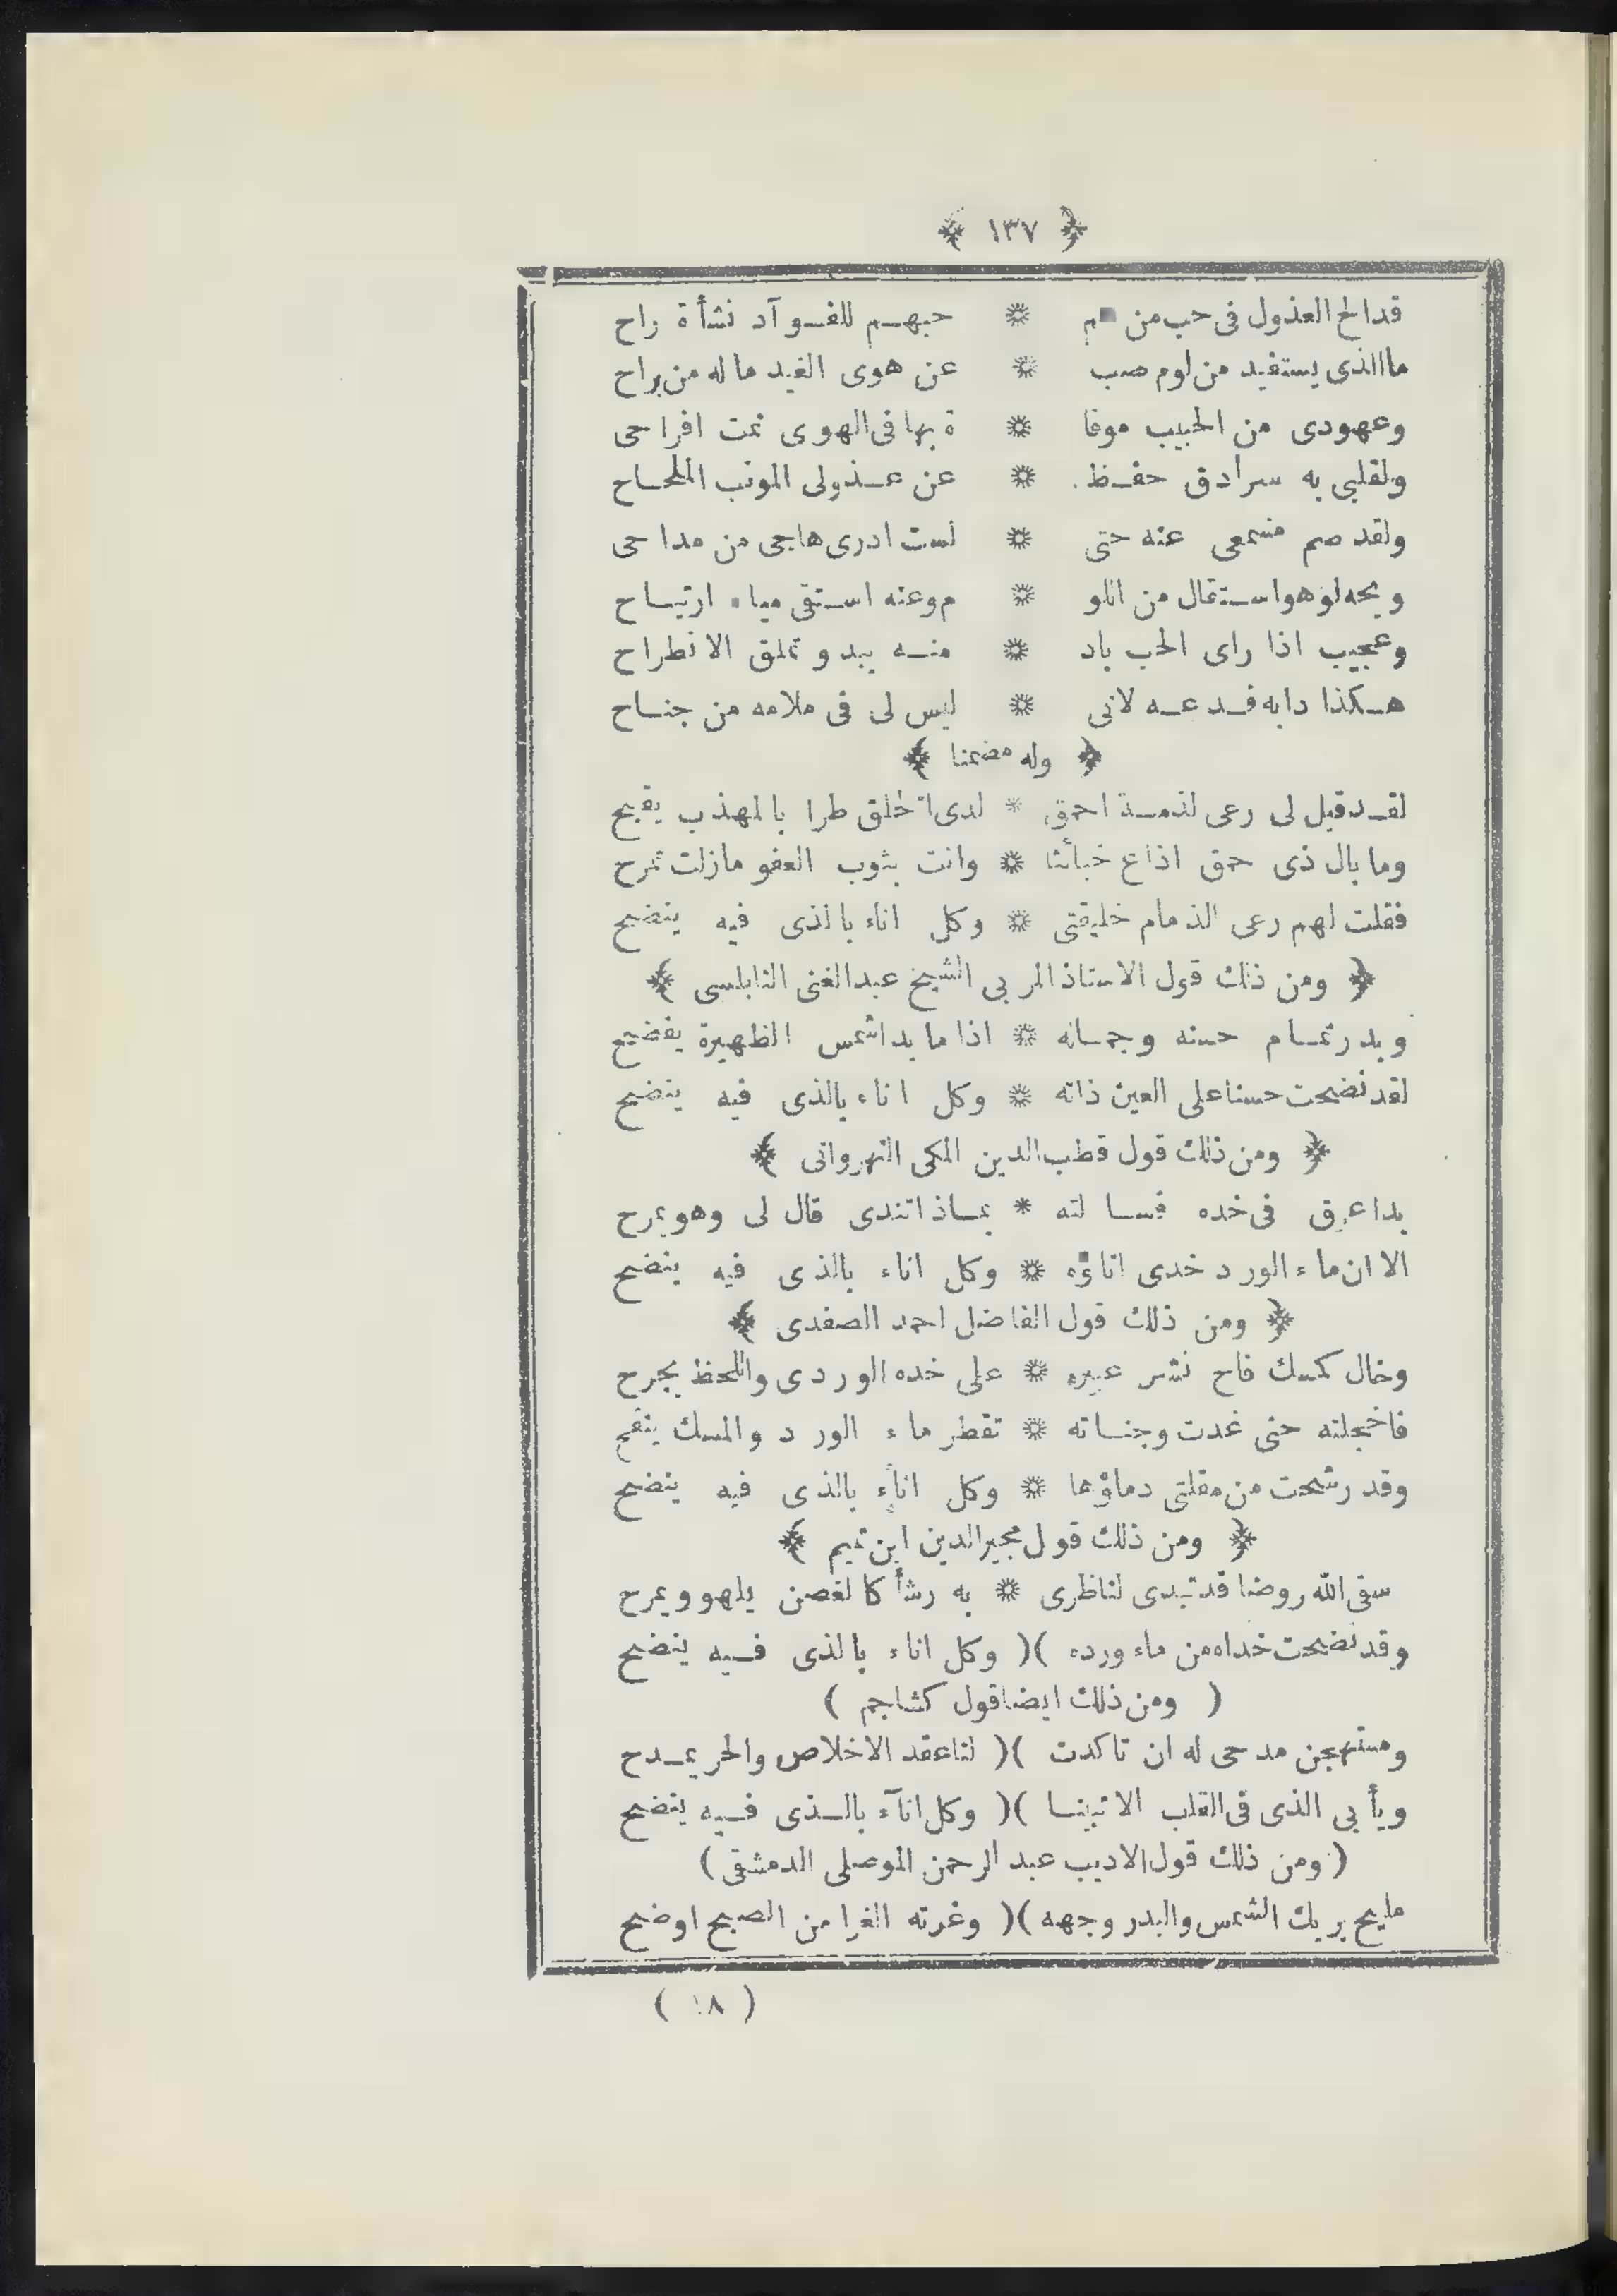 ﴿ ١٣٧ ﴾
قد الح العذول فى حب من * حبهم للفوآد نشأة راح
ما الذى يستفيد من لوم صب * عن هوى الغيد ما له من براح
وعهودى من الحبيب موفا * ة بها فى الهوى تمت افراحى
ولقلبى به سرادق حفظ * عن عذولى المونب الملحاح
ولقد صم مسمعى عنه حتى * لست ادرى هاجى من مداحى
ويحه لو هو استقال من اللو * م وعنه استقى مياه ارتياح
وعجيب اذا راى الحب باد * منه يبدو تملق الانطراح
هكذا دابه فدعه لانى * ليس لى فى ملامه من جناح
﴿ وله مضمنا ﴾
لقد قيل لى رعى لذمة احمق * لدى الخلق طرا بالمهذب يقبح
وما بال ذى حمق اذاع خبائثا * وانت بثوب العفو مازلت تمرح
فقلت لهم رعى الذمام خليقتى * وكل اناء بالذى فيه ينضح
﴿ ومن ذلك قول الاستاذ المربى الشيخ عبد الغنى النابلسى ﴾
وبدر تمام حسنه وجماله * اذا ما بدا شمس الظهيرة يفضح
لقد نضحت حسنا على العين ذاته * وكل اناء بالذى فيه ينضح
﴿ ومن ذلك قول قطب الدين المكى النهروانى ﴾
بدا عرق فى خده فسالته * بماذا تندى قال لى وهو يمرح
الا ان ماء الورد خدى اناؤه * وكل اناء بالذى فيه ينضح
﴿ ومن ذلك قول الفاضل احمد الصفدى ﴾
وخال كمسك فاح نشر عبيره * على خده الوردى واللحظ يجرح
فاخجلته حتى غدت وجناته * تقطر ماء الورد والمسك ينفح
وقد رشحت من مقلتى دماؤها * وكل اناء بالذى فيه ينضح
﴿ ومن ذلك قول مجير الدين ابن تميم ﴾
سقى الله روضا قد تبدى لناظرى * به رشأ كالغصن يلهو ويمرح
وقد نضحت خداه من ماء ورده )( وكل اناء بالذى فيه ينضح
( ومن ذلك ايضا قول كشاجم )
ومستهجن مدحى له ان تاكدت )( لنا عقد الاخلاص والحر يمدح
ويأبى الذى فى القلب الا تبينا )( وكل انآء بالذى فيه ينضح
( ومن ذلك قول الاديب عبد الرحمن الموصلى الدمشقى )
مليح يريك الشمس والبدر وجهه )( وغرته الغرا من الصبح اوضح
( ١٨ )